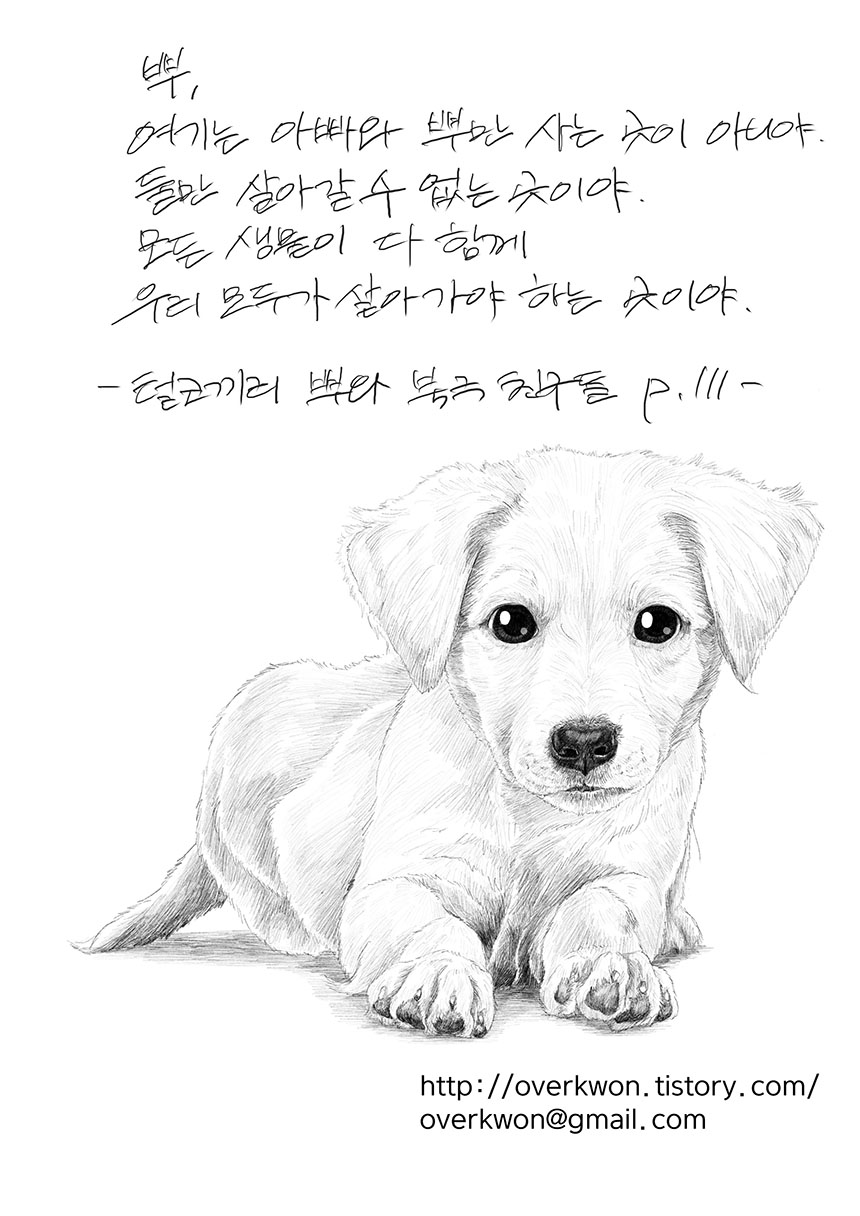 뿌,
여기는 아빠와 뿌만 사는 곳이 아니야.
둘만 살아갈 수 없는 곳이야.
모든 생물이 다 함께
우리 모두가 살아가야 하는 곳이야.
- 털코끼리 뿌와 북극 친구들 p.111 -
http://overkwon.tistory.com/
overkwon@gmail.com